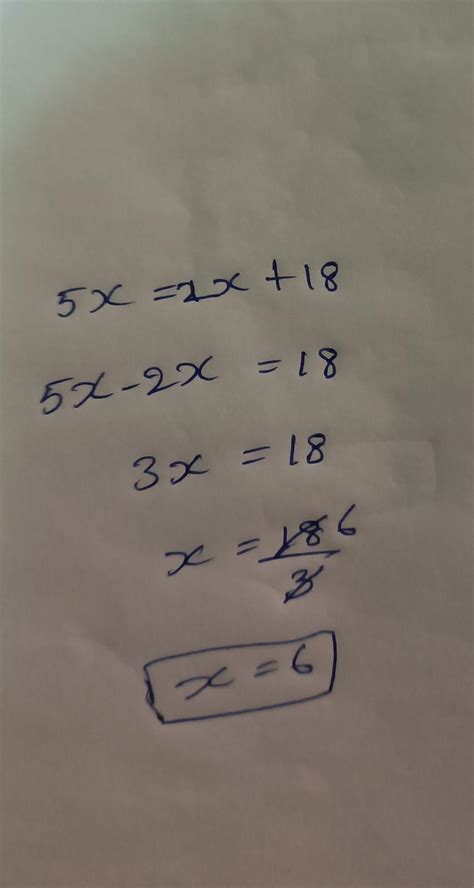 5x = 2x + 18
5x - 2x = 18
3x = 18
x = 18/3 6
x = 6